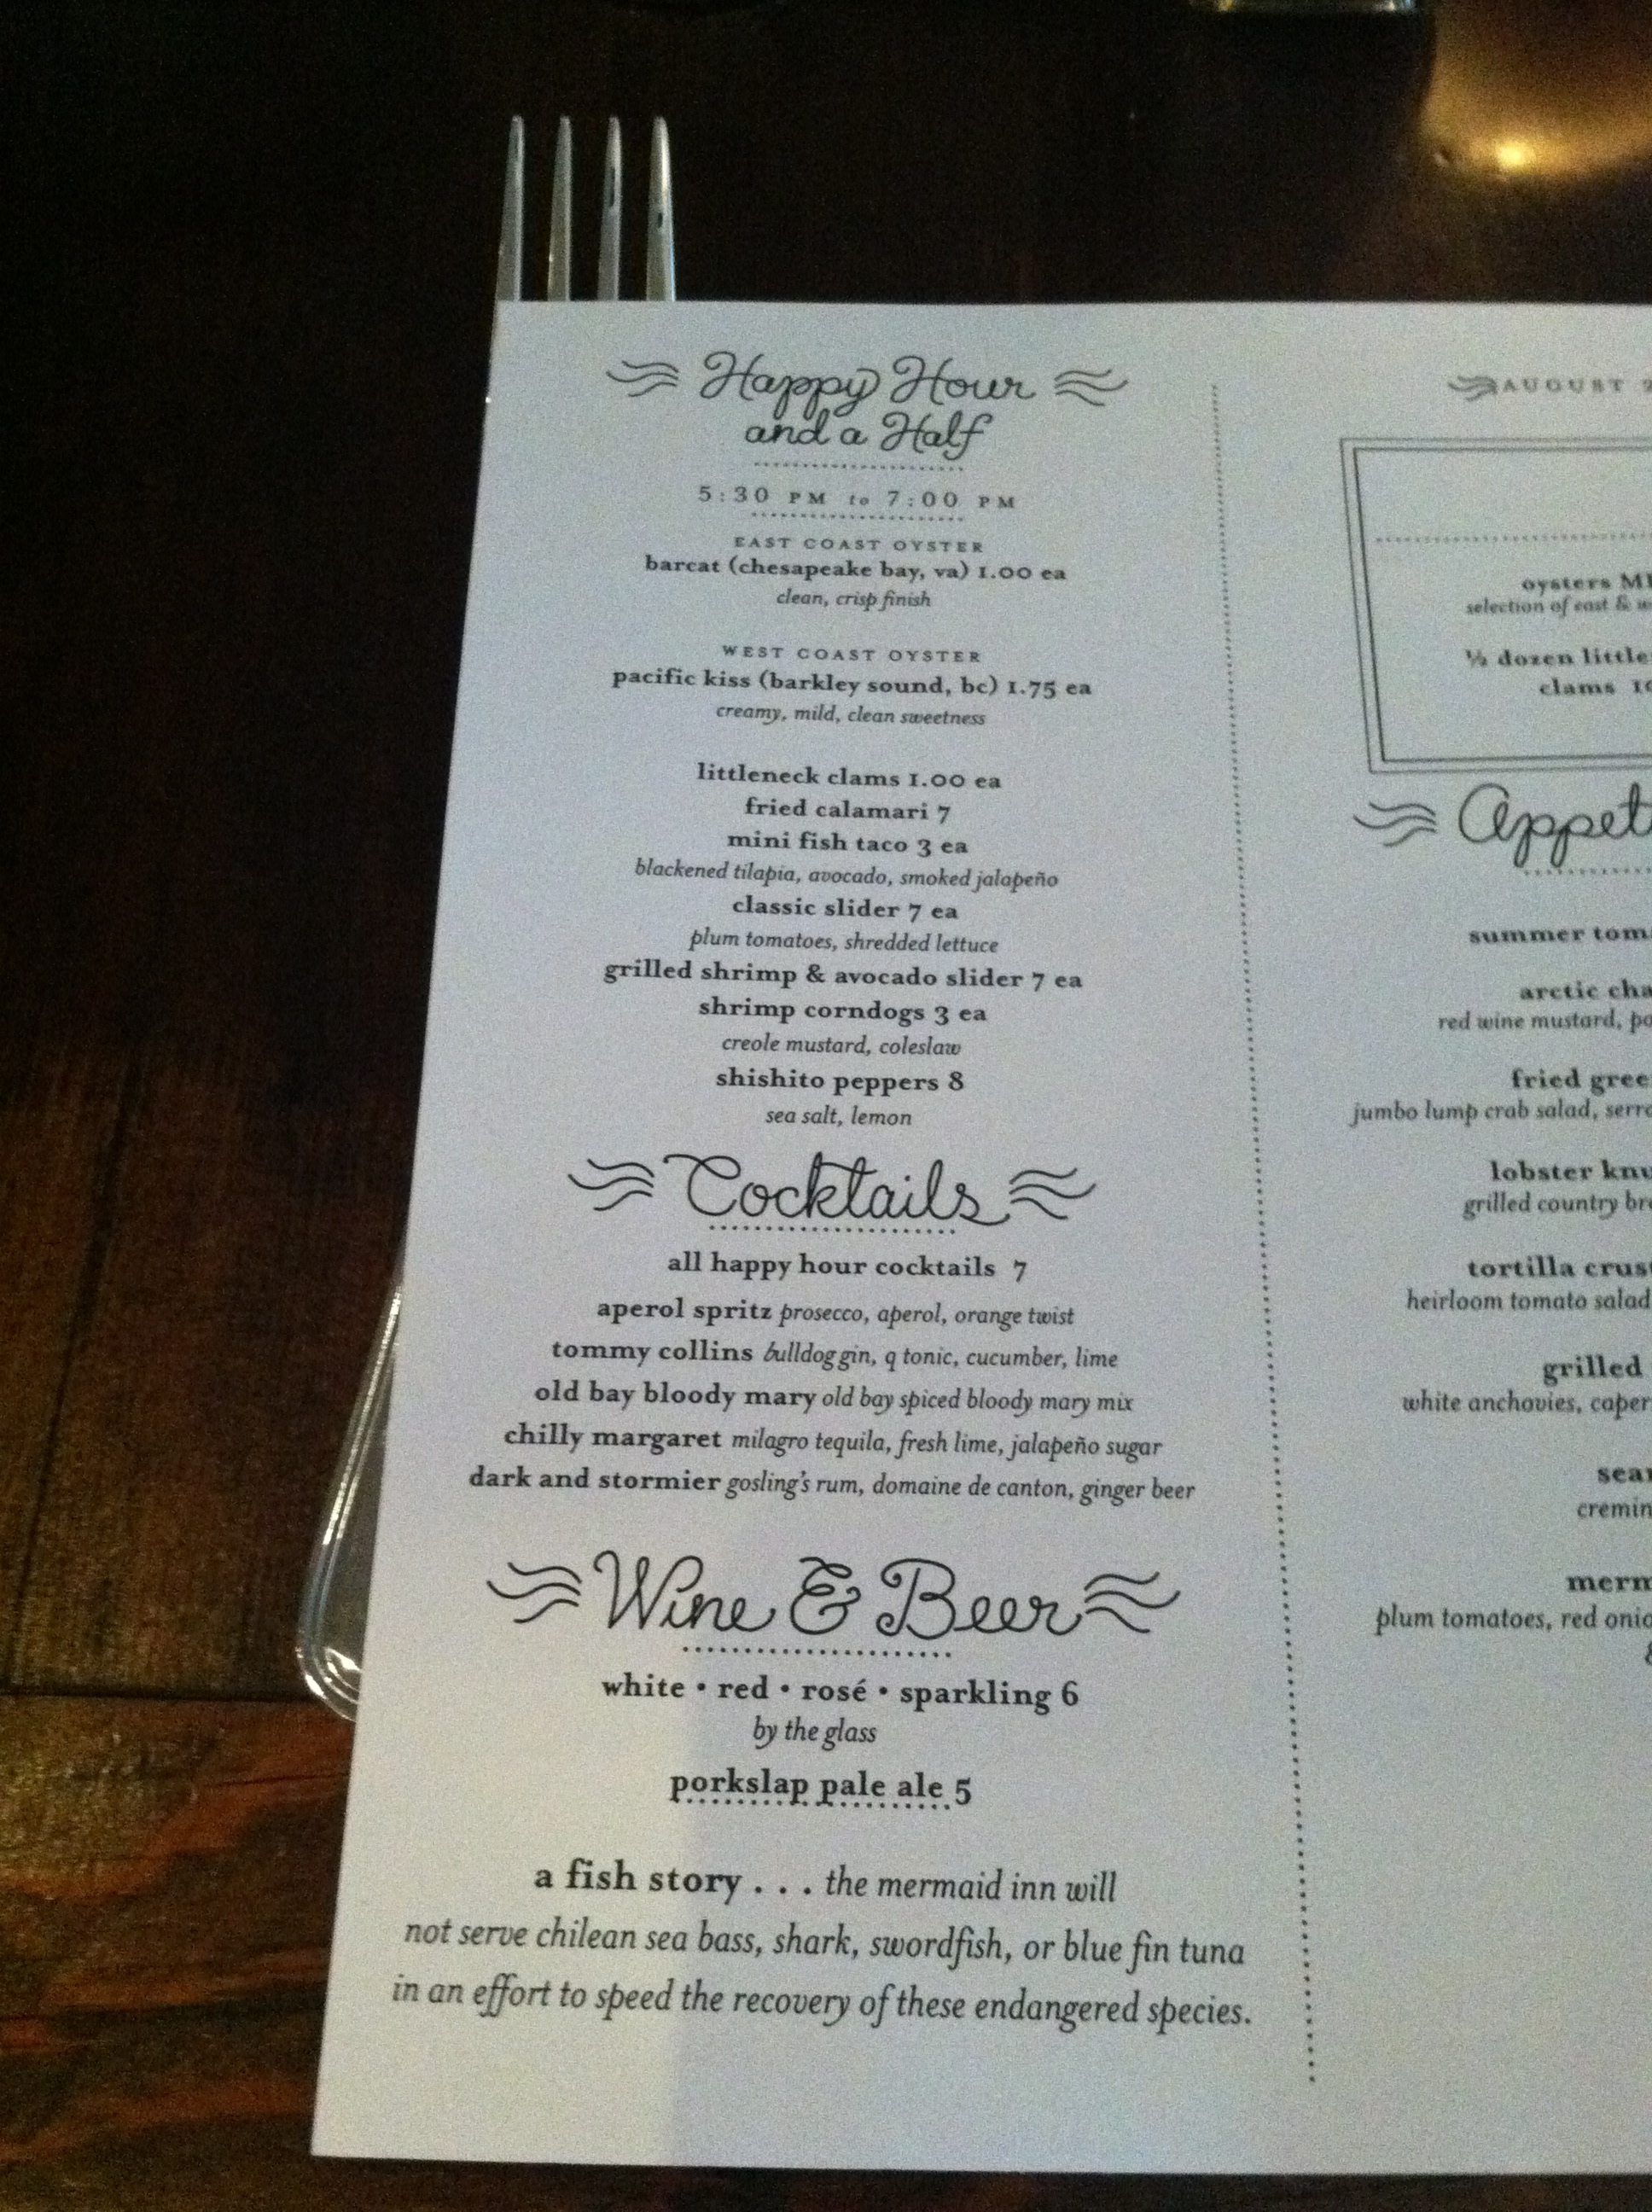 Happy Hour
and a Half
5:30 PM to 7:00 PM
EAST COAST OYSTER
barcat (chesapeake bay, va) 1.00 ea
clean, crisp finish
WEST COAST OYSTER
pacific kiss (barkley sound, bc) 1.75 ea
creamy, mild, clean sweetness
littleneck clams 1.00 ea
fried calamari 7
mini fish taco 3 ea
blackened tilapia, avocado, smoked jalapeño
classic slider 7 ea
plum tomatoes, shredded lettuce
grilled shrimp & avocado slider 7 ea
shrimp corndogs 3 ea
creole mustard, coleslaw
shishito peppers 8
sea salt, lemon
Cocktails
all happy hour cocktails 7
aperol spritz prosecco, aperol, orange twist
tommy collins bulldog gin, q tonic, cucumber, lime
old bay bloody mary old bay spiced bloody mary mix
chilly margaret milagro tequila, fresh lime, jalapeño sugar
dark and stormier gosling's rum, domaine de canton, ginger beer
Wine & Beer
white • red • rosé • sparkling 6
by the glass
porkslap pale ale 5
a fish story . . . the mermaid inn will
not serve chilean sea bass, shark, swordfish, or blue fin tuna
in an effort to speed the recovery of these endangered species.
AUGUST
oysters
selection of east &
½ dozen little
clams
Appet
summer tom
arctic cha
red wine mustard, po
fried gree
jumbo lump crab salad, serr
lobster knu
grilled country br
tortilla crus
heirloom tomato salad
grilled
white anchovies, caper
sear
cremin
merm
plum tomatoes, red onio